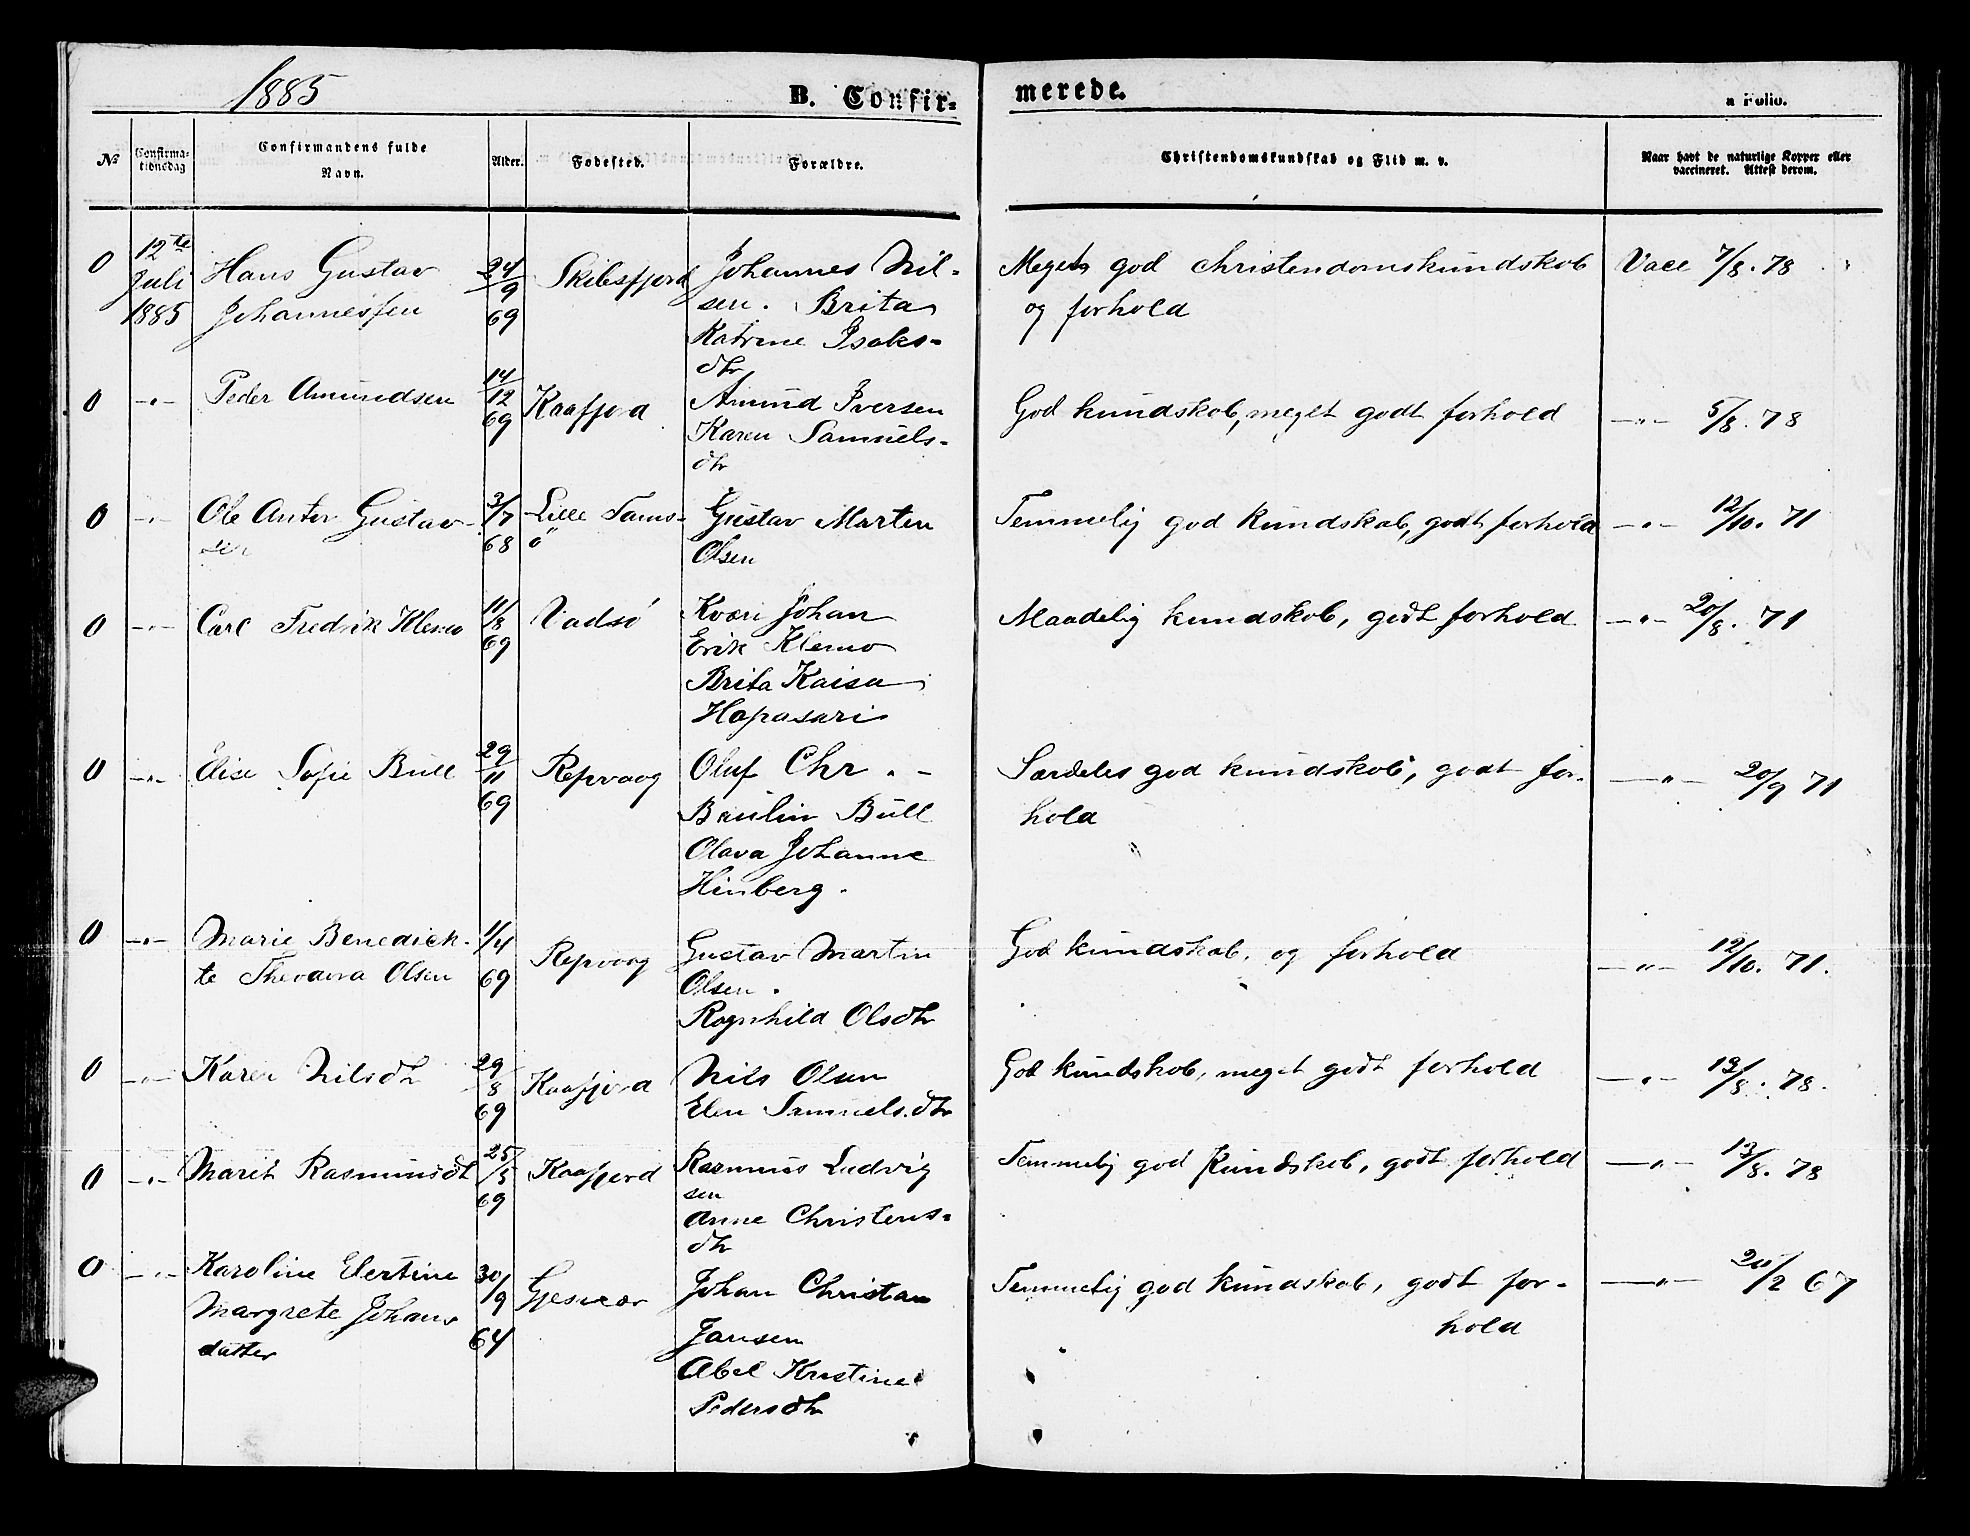 1885
B. Confir=
merede.
a Folio.
№
Confirma-
tionsdag
Confirmandens fulde
Navn.
Alder.
Fødested.
Forældre.
Christendomskundskab og Flid m. v.
Naar havt de naturlige Kopper eller
vaccineret. Attest derom.
0 12te Juli 1885 Hans Gustav Johannesſen 24/9 69 Skibsfjord Johannes Nil-
sen. Brita
Katrine Isaks-
dtr
Meget god christendomskundskab
og forhold
Vacc 7/8. 78
0 -„- Peder Amundsen 14/12 69 Kaafjord Amund Iversen
Karen Samuels-
dtr
God kundskab, meget godt forhold -„- 5/8. 78
0 -„- Ole Anton Gustav-
sen
3/7 68 Lille Tams-
ö
Gustav Marten
Olsen
Temmelig god kundskab, godt forhold -„- 12/10. 71
0 -„- Carl Fredrik Klemo 11/8 69 Vadsö Kvæn Johan
Erik Klemo
Brita Kaisa
Hapasari
Maadelig kundskab, godt forhold -„- 20/8. 71
0 -„- Elise Sofie Bull 29/11 69 Repvaag Oluf Chr. -
Baulin Bull
Olava Johanne
Hinberg.
Særdeles god kundskab, godt for-
hold
-„- 20/9 71
0 -„- Marie Benedick-
te Theodora Olsen
1/4 69 Repvaag Gustav Martin
Olsen.
Ragnhild Olsdtr
God kundskab, og forhold -„- 12/10. 71.
0 -„- Karen Nilsdtr 29/8 69 Kaafjord Nils Olsen
Elen Samuelsdtr
God kundskab, meget godt forhold -„- 13/8. 78.
0 -„- Maret Rasmusdt 25/5 69 Kaafjord Rasmus Ludvig
sen
Anne Christens-
dtr
Temmelig god kundskab, godt forhold -„- 13/8. 78
0 -„- Karoline Elertine
Margrete Johans
datter
30/9 64 Gjesvær Johan Christan
Jansen
Abel Kristine
Pedersdtr
Temmelig god kundskab, godt for-
hold
-„- 20/2 67